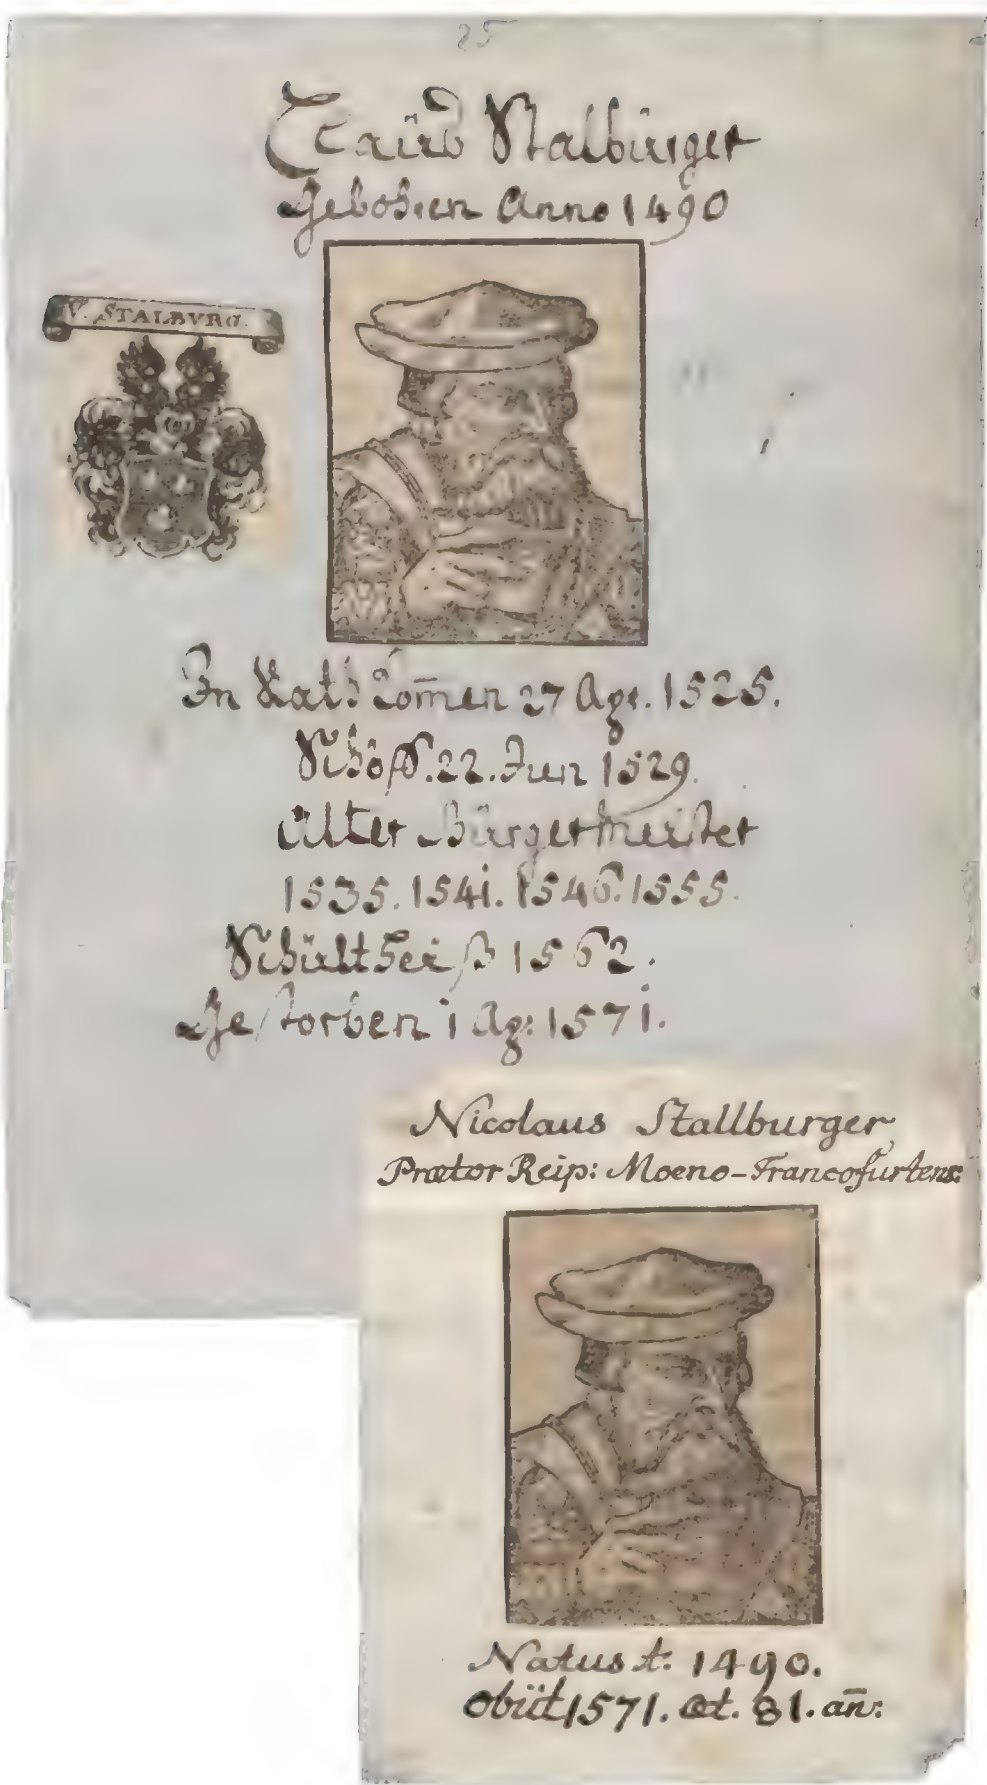 25
Claus Stalburger
Gebohren Anno 1490
V. STALBVRG.
In Rath kom̄en 27 Apr. 1525.
Schöff. 22. Jun 1529.
Älter Bürgermeister
1535. 1541. 1546. 1555.
Schultheiß 1562.
Gestorben 1 Ap: 1571.
Nicolaus Stallburger,
Prætor Reip: Moeno-Francofurtens:
Natus A: 1490.
obiit 1571. æt. 81. an̄: